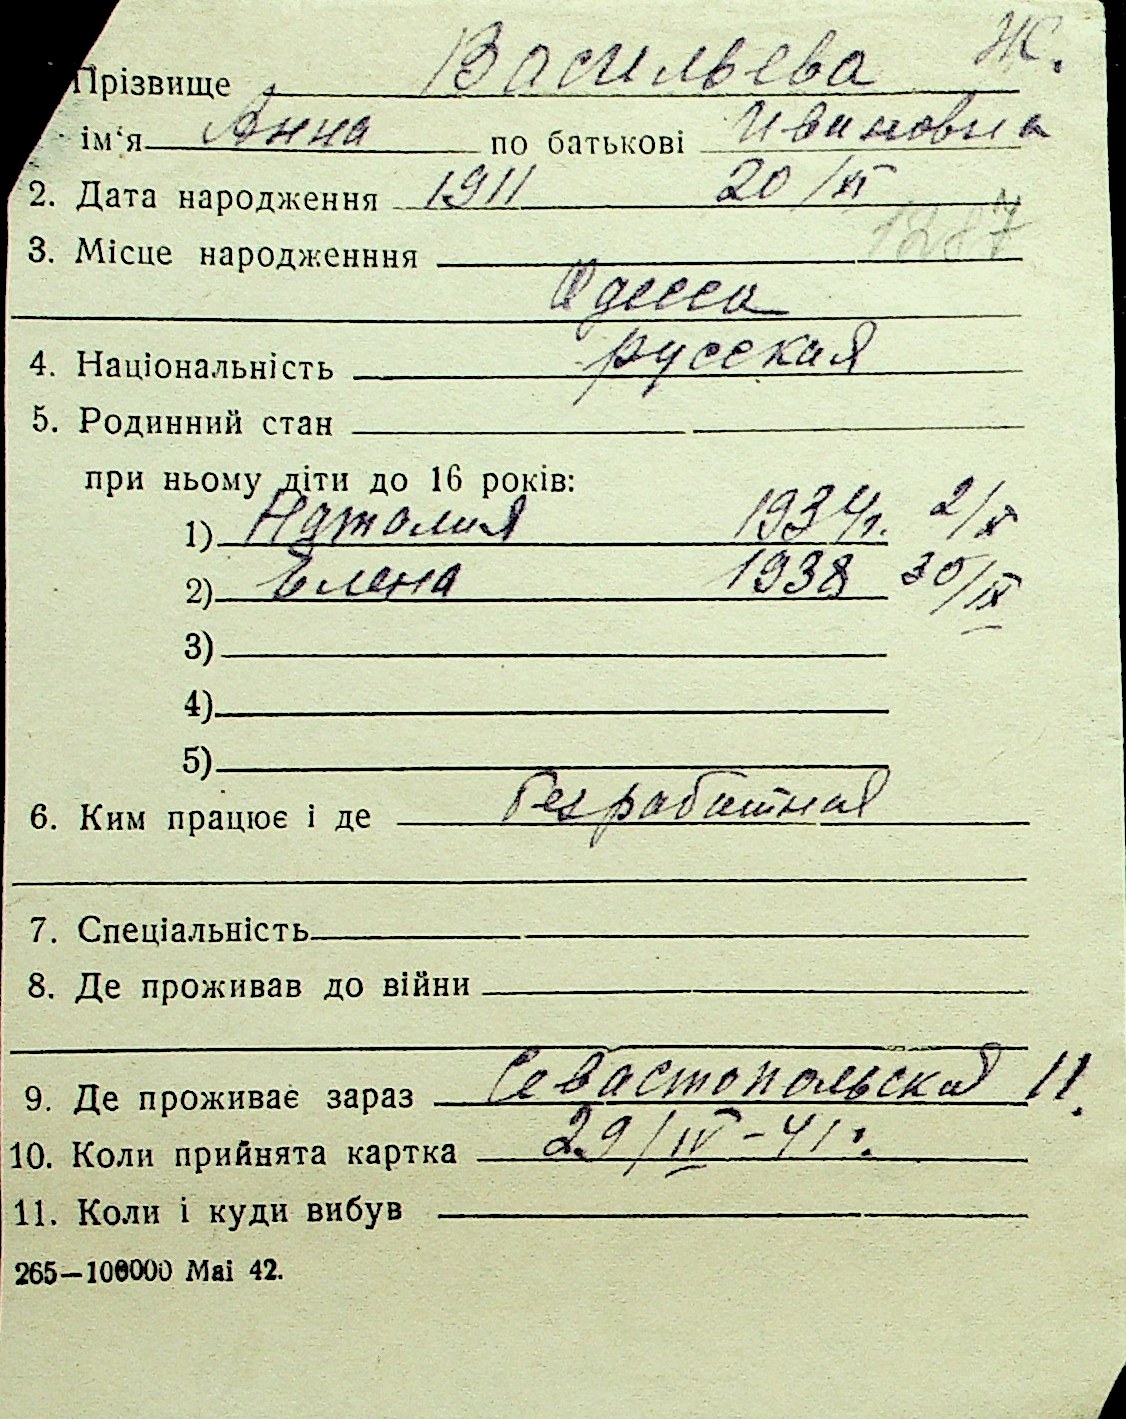 Прізвище Васильева Ж.
ім'я Анна по батькові Ивановна
2. Дата народження 1911 20/XI
1287
3. Місце народженння
Одесса
4. Національність русская
5. Родинний стан
при ньому діти до 16 років:
1) Наталия 1934г. 2/X
2) Елена 1938 30/IX
3)
4)
5)
6. Ким працює і де безработная
7. Спеціальність
8. Де проживав до війни
9. Де проживає зараз Севастопольская 11.
10. Коли прийнята картка 29/IV-41г.
11. Коли і куди вибув
265—100000 Mai 42.